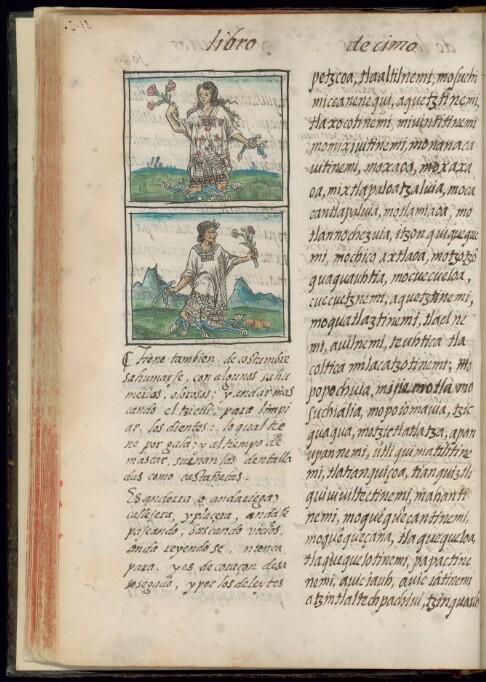 libro decimo
Tiene tambien de costumbre
sahumarse, con algunos sahu
merios, olorosos; y andar mas
cando el tzictli, para limpi
ar los dientes: lo qual tie
ne por gala: y al tiempo de
mascar, suenan las dentella
das como castañedas.
Es andorra o andariega,
callejera, y placera, andase
paseando, buscando vicios,
anda reyendo se, nunca
para. y es de coraçon desa
sosegado, y por los deleites
petzcoa, tlaaltilnemi, mosuchi
miccanenequi, aquetztinemi,
tlaxocotinemi, mivintitinemi
momixiuitinemi, monanaca
vitinemi, moxaoa, moxaxa
oa, mixtlapaloatzaluia, moca
cantlapaluia, motlamiaoa, mo
tlannochezuia, itzon quiqueque
mi, mochico axtlaoa, motzotzo
quaquauhtia, mocuecueloa,
cuecuetznemi, aquetztinemi,
moquatlaztinemi, tlaelne
mi, auilnemi, teuhtica tla
çoltica milacatzotinemi; mo
popochuia, mo
suchialia, mopotomania, tzic
quaqua, motzictlatlatza, apan
upannemi, utli quimatiltine
mi, tlatianquiçoa, tianquiztli
quiuiuiltectinemi, mahanti
nemi, moquequecantinemi,
moquequecana, tlaquequeloa,
tlaquequelotinemi, papactine
nemi, auic iauh, auic iatinemi
atzintlaltech pachiui,